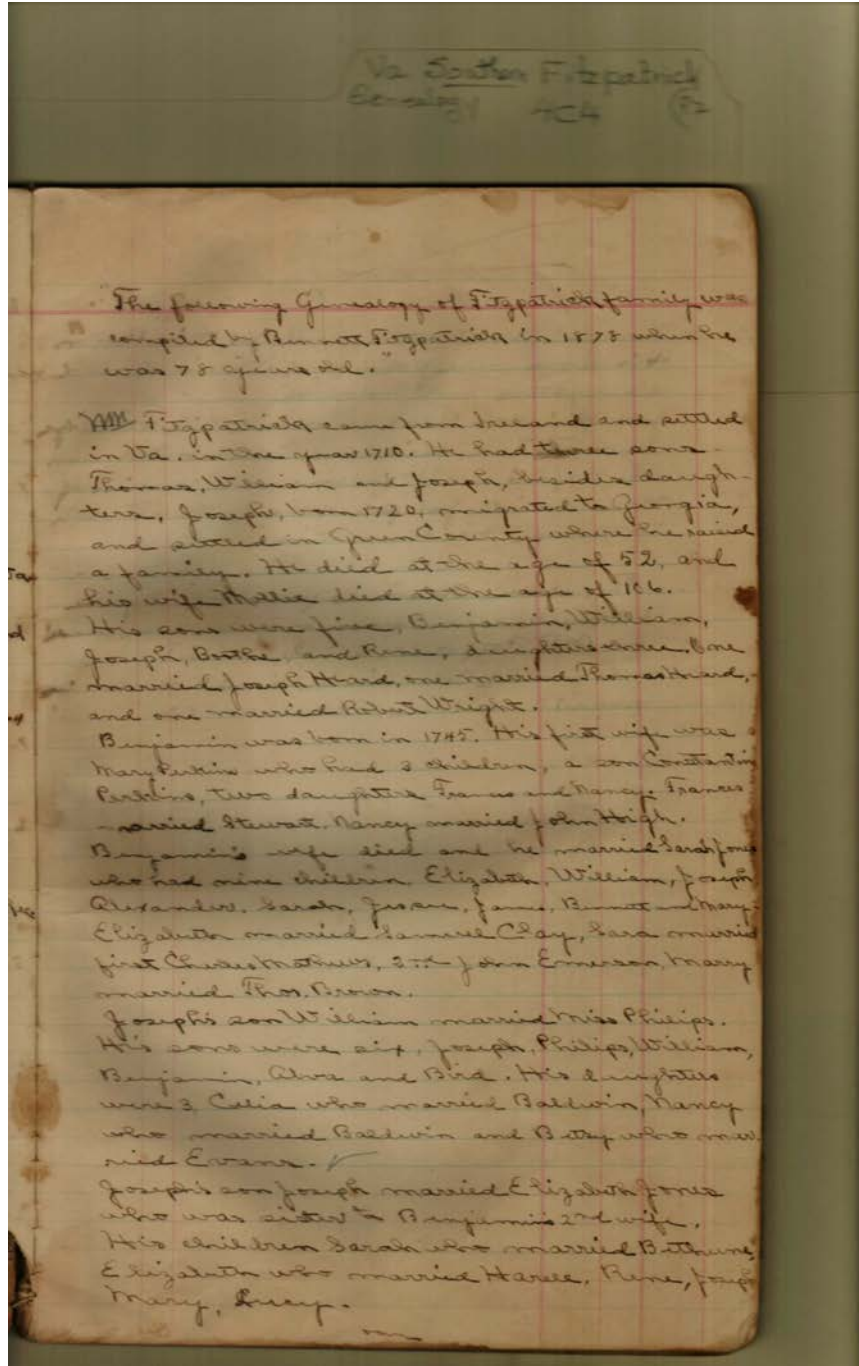 Va Southern Fitzpatrick
Genealogy 4C4 P2
"The following Genealogy of Fitzpatrick family was
compiled by Bennett Fitzpatrick in 1878 when he
was 78 years old."
Wm Fitzpatrick came from Ireland and settled
in Va. in the year 1710. He had three sons -
Thomas, William and Joseph, besides daugh-
ters. Joseph, born 1720, migrated to Georgia,
and settled in Green County where he raised
a family. He died at the age of 52, and
his wife Mollie died at the age of 106.
His sons were five, Benjamin, William,
Joseph, Boothe, and Rene, daughters three. One
married Joseph Heard, one married Thomas Heard,
and one married Robert Wright.
Benjamin was born in 1745. His first wife was
Mary Perkins who had 3 children, a son Constantine
Perkins, two daughters Frances and Nancy. Frances
married Stewart. Nancy married John High.
Benjamin's wife died and he married Sarah Jones
who had nine children, Elizabeth, William, Joseph
Alexander, Sarah, Jessee, James, Bennett and Mary.
Elizabeth married Samuel Clay, Sara married
first Charles Mathews, 2nd John Emerson, Mary
married Thos. Brown.
Joseph's son William married Miss Philips.
His sons were six, Joseph, Philips, William,
Benjamin, Alva and Bird. His daughters
were 3, Celia who married Baldwin, Nancy
who married Baldwin and Betsy who mar-
ried Evans. ✓
Joseph's son Joseph married Elizabeth Jones
who was sister to Benjamin's 2nd wife.
His children Sarah who married Bethune,
Elizabeth who married Harell, Rene, Joseph
Mary, Lucy.